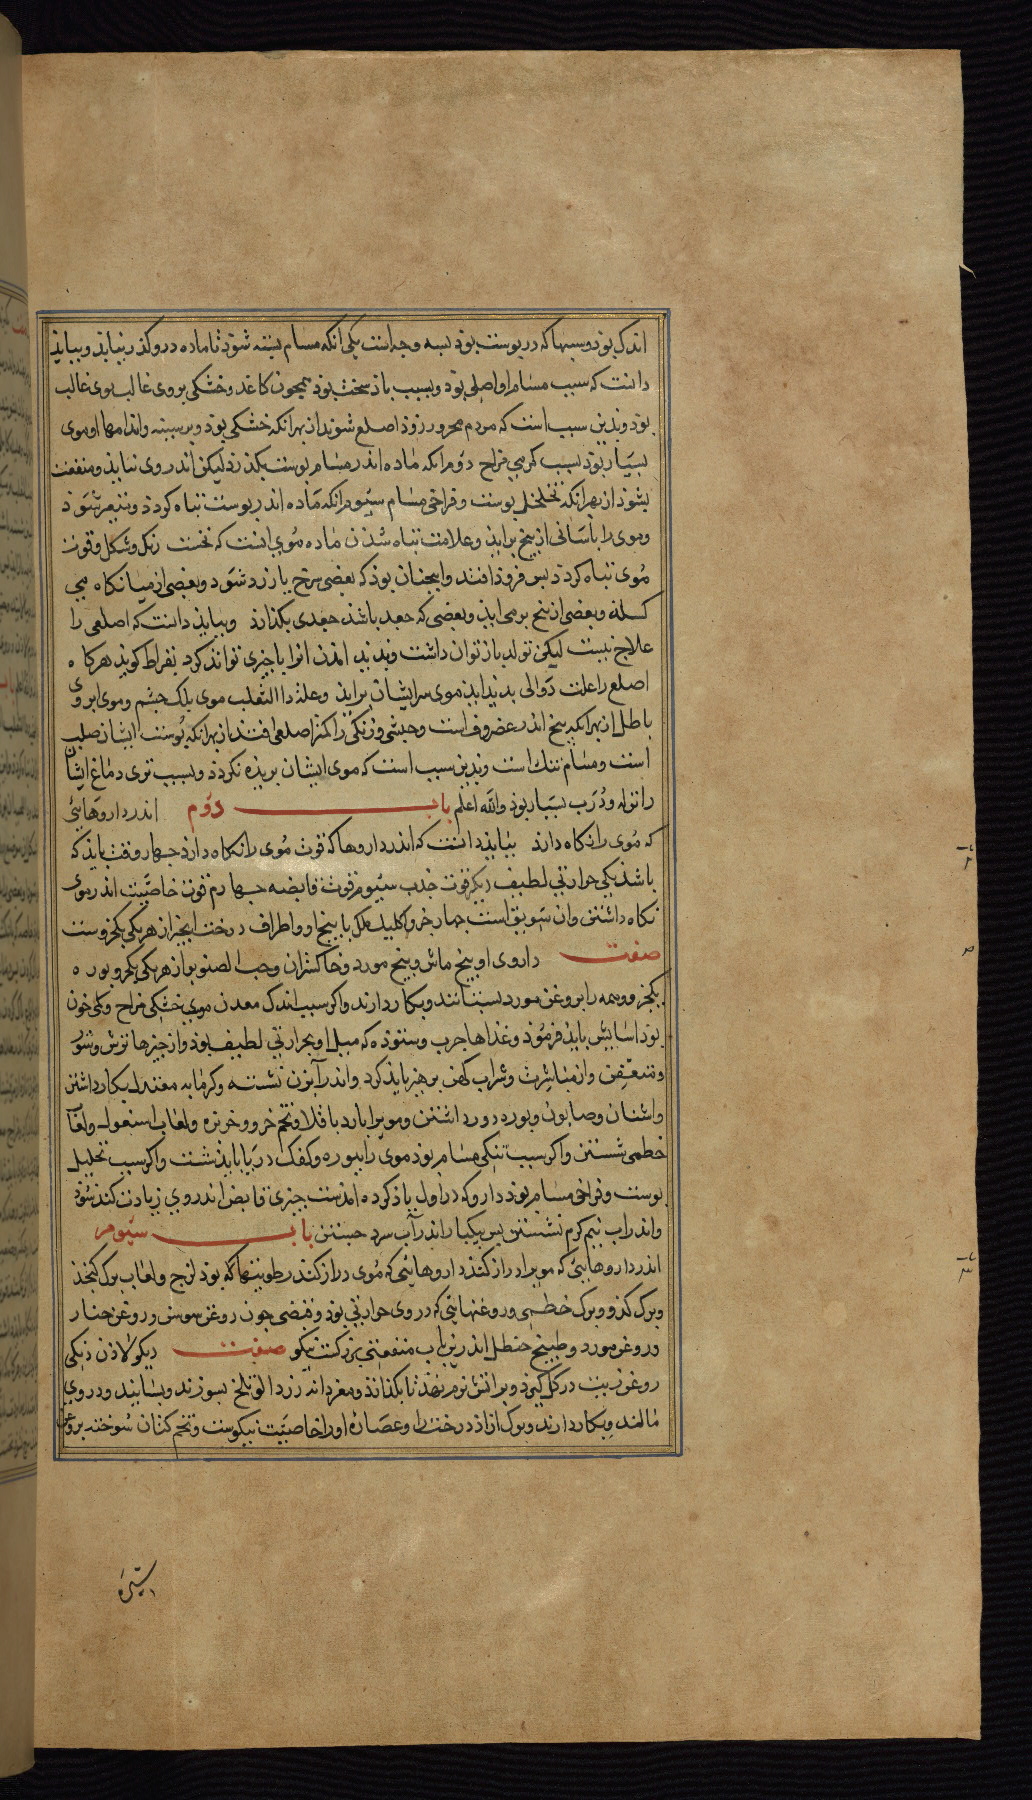 اندک بوذ و سببها که در پوست بوذ بسه وجه است یکی انکه مسام بسته شوذ تا ماده درو کذر نیابذ و ببایذ
دانست که سبب مسام او اصلی بوذ و بسبب باز سخت بوذ همچون کاغذ و خشکی بروی غالب بوی غالب
بوذ و بذین سبب است که مردم محرور زوذ اصلع شوند از بهر انکه خشکی بوذ و بر سینه و اندامها او موی
بسیار بوذ بسبب کرمی مزاج دوم انکه ماده اندر مسام پوست بکذرذ لیکن اندر وی نپایذ و منفعت
بشوذ از بهر انکه تخلخل پوست و فراخی مسام سیوم انکه ماده اندر پوست تباه کردذ و متغیر شوذ
و موی را باسانی از بیخ برایذ و علامت تباه شذن ماده موی انست که نخست رنک و شکل و قوت
موی تباه کردذ پس فروذ افتد و ایجنان بوذ که بعضی سرخ یا زرد شوذ و بعضی از میانکاه می
کسلذ و بعضی از بیخ برمی ایذ و بعضی که جعد باشذ جعدی بکذارذ و ببایذ دانست که اصلعی را
علاج نیست لیکن تولد باز توان داشت و بذید امذن انرا یا جیزی تواند کرد بقراط کویذ هرکاه
اصلع را علت دوالی بدید ایذ موی سر ایشان برایذ و علة دا الثعلب موی پلک جشم و موی ابروی
باطل از بهر انکه بیخ اندر غضروف است و حبشی و زنکی را کمتر اصلعی افتد از بهر انکه پوست ایشان صلب
است و مسام تنک است و بذین سبب است که موی ایشان بریذه نکردذ و بسبب تری دماغ ایشان
را نزله و ذرب بسیار بوذ والله اعلم باب دوم اندر داروهایی
که موی را نکاه دارذ ببایذ دانست که اندر داروها که قوت موی را نکاه دارذ جهار قوت بایذ که
باشذ یکی حرارتی لطیف دیکر قوت جذب سیوم قوت قابضه جهارم قوت خاصیت اندر موی
نکاه داشتن وان سویق است جمار خرو اکلیل ملک بابیخ او و اطراف درخت انجیر از هر یکی یکجزوست
صفت داروی او بیخ ماش و بیخ مورد و خاکستر ان وحب الصنوبر از هر یکی یکجزو بوره
یکجزو و همه را بروغن مورد بسرشند و بکار دارند و اکر سبب اندک معدن موی خشکی مزاج و کمی خون
بوذ اسایش بایذ فرموذ و غذاها جرب و ستوذه که میل او بحرارتی لطیف بوذ و از جیزها ترش و شور
و متعفن و از مباشرت و شراب کهن برهیز بایذ کرد و اندر آبزن نشستن و کرمابه معتدل بکار داشتن
واشنان و صابون و بوره دور داشتن و مویرا بارد باقلا و تخم خر و خربزه و لعاب اسبغول و لعاب
خطمی شستن و اکر سبب تنکی مسام بوذ موی را ببوره و کفک دریا بایذ شست و اکر سبب تخلخل
پوست و فراخی مسام بوذ دارو که در اول یاذ کرده امذست جیزی قابض اندر وی زیادت کند شوذ
و اندر اب نیم کرم نشستن پس بیکبار اندر آب سرد جستن باب سیوم
اندر داروهایی که مویرا دراز کند داروهایی که موی دراز کند رطوبتها که بوذ لزج و لعاب برک کنجذ
و برک کدو و برک خطمی و روغنهایی که در وی حرارتی بوذ و قبضی جون روغن سوسن و روغن حنا و
و روغن مورد و طبیخ حنظل اندرین باب منفعتی بزرکست نیکو صفت دیکر لاذن ذیکی
روغن زیت در کل کیرذ و بر اتش نرم نهذ تا بکذازذ و مغز دانه زرد الو تلخ بسوزند و بسایند و در وی
مالند و بکار دارند و برک ازاذ درخت را و عصاره او را خاصیت نیکوست و تخم کتان سوخته بروغن